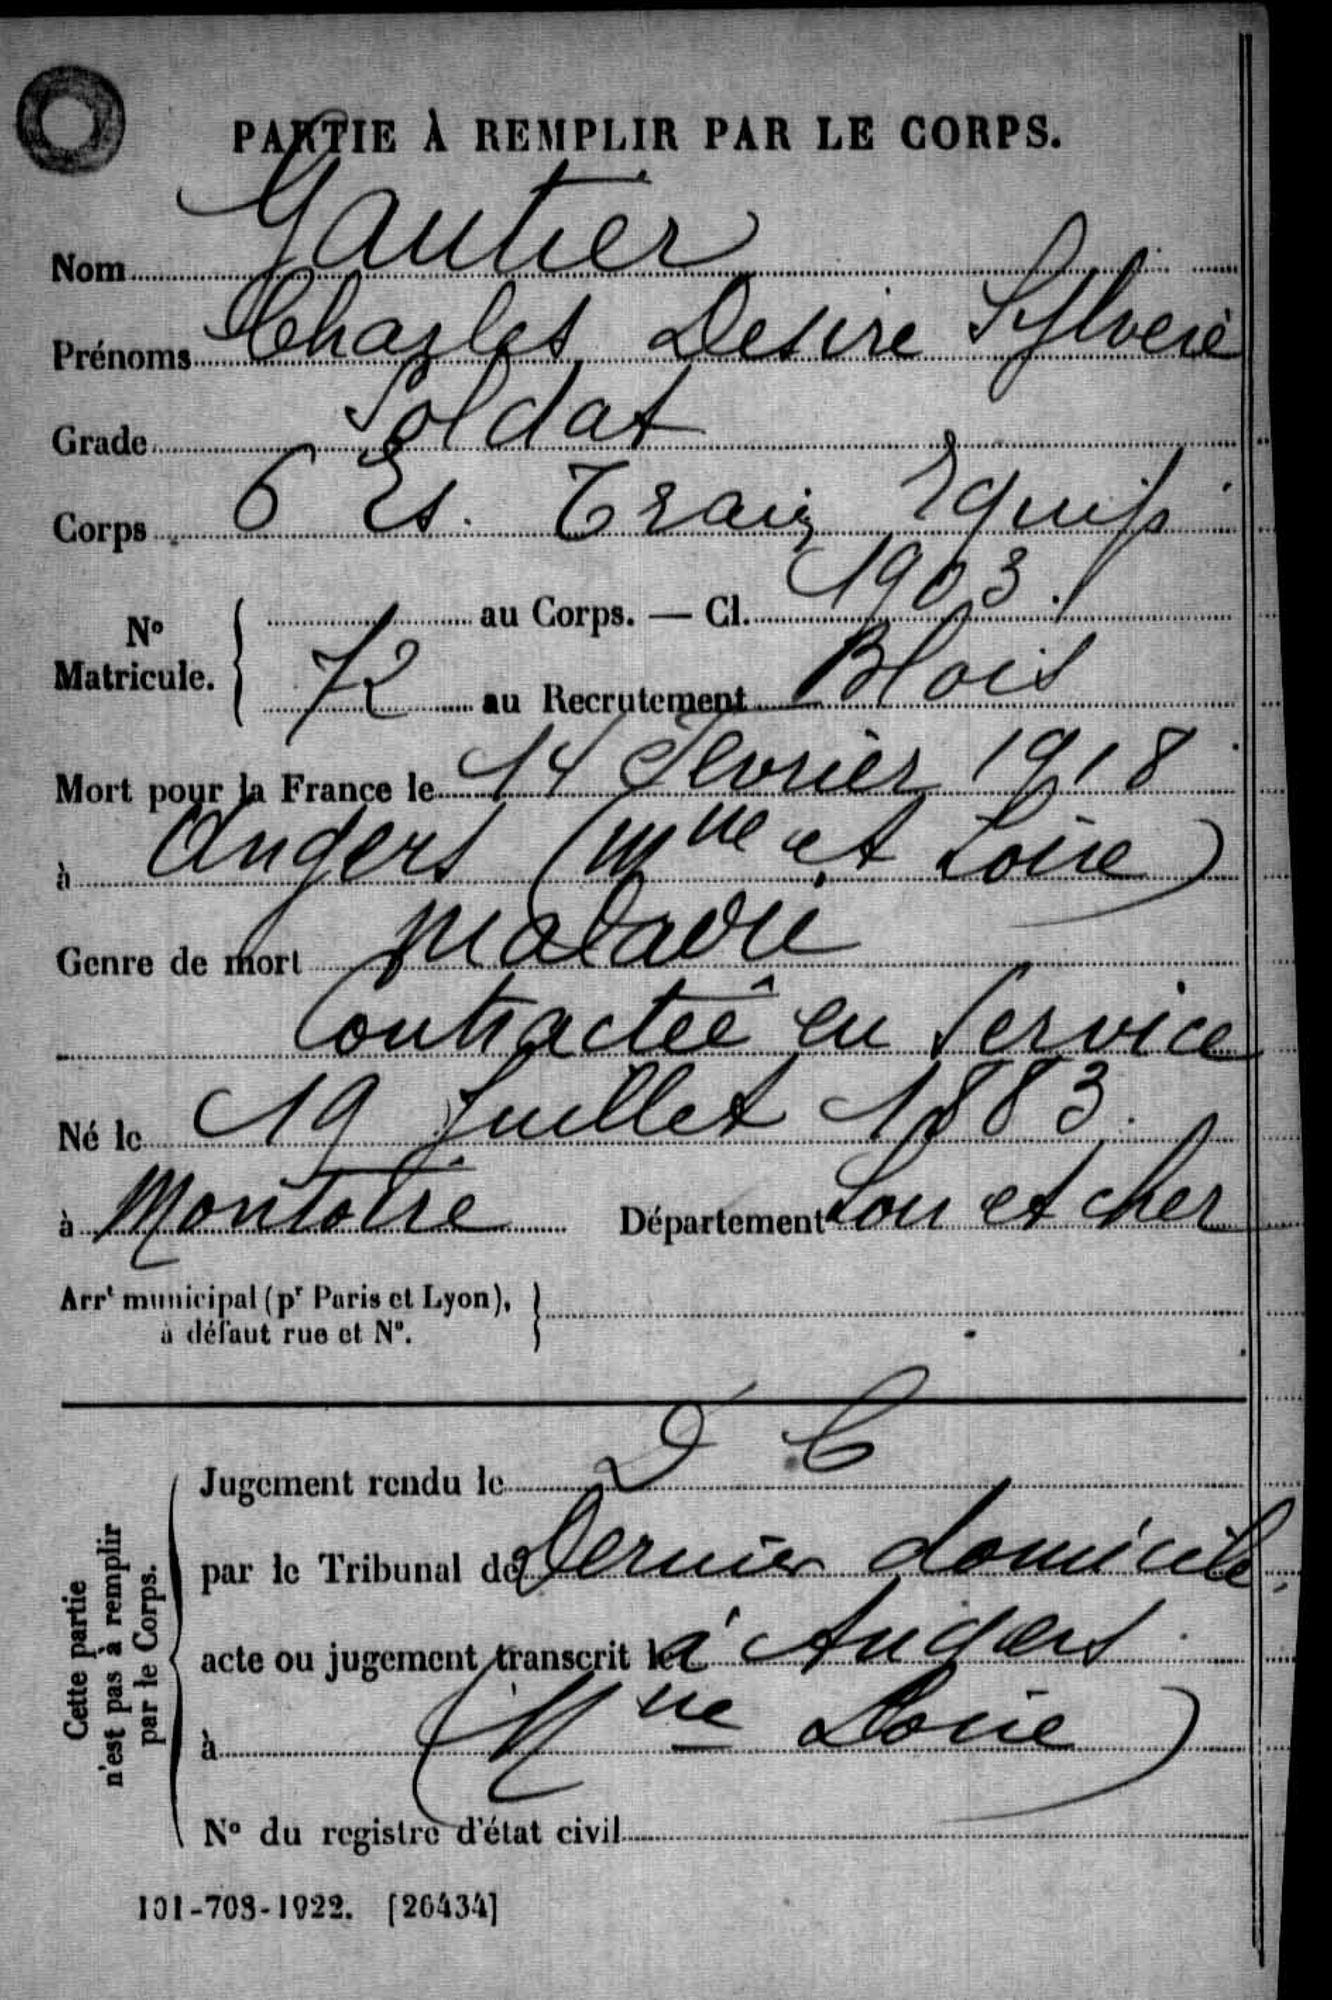 PARTIE À REMPLIR PAR LE CORPS.
Nom Gautier
Prénoms Charles Desire Sylvere
Grade Soldat
Corps 6 Es. Train Equip
Nº Matricule. { au Corps. — Cl. 1903.
72 au Recrutement Blois
Mort pour la France le 14 Fevrier 1918
à Angers (Mne et Loire)
Genre de mort Maladie
Contractée en Service
Né le 19 Juillet 1883.
à Montoire Département Loir et Cher
Arrt municipal (pr Paris et Lyon),
à défaut rue et Nº.
Cette partie n'est pas à remplir par le Corps.
Jugement rendu le D C
par le Tribunal de Dernier domicile
acte ou jugement transcrit le à Angers
à (Mne Loire)
Nº du registre d'état civil
101-708-1922. [26434]